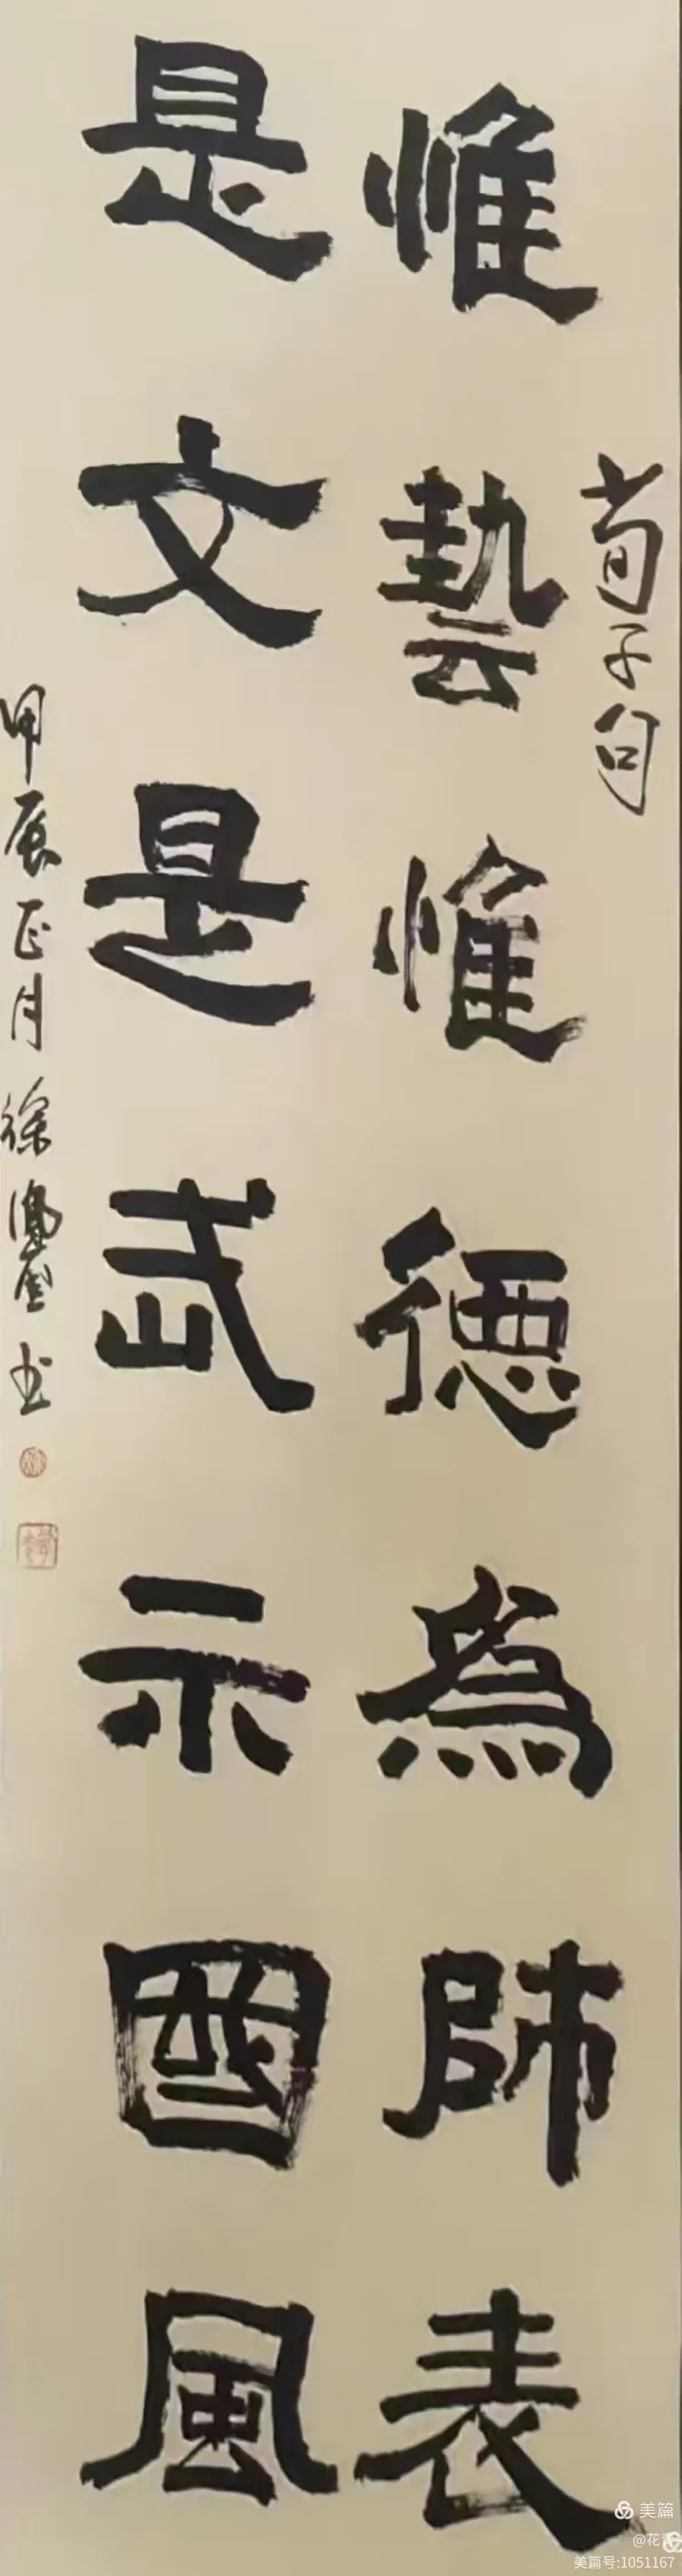 荀子句
惟藝惟德為師表
是文是武示國風
甲辰正月徐書
美篇
@花
美篇号:1051167